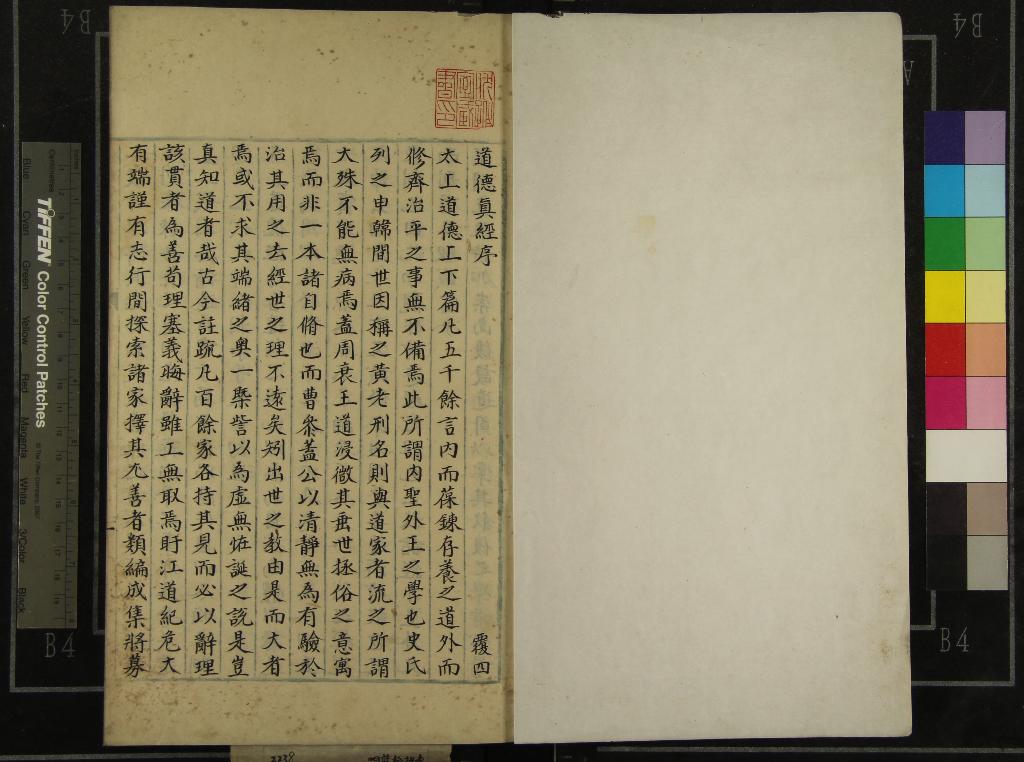 道德眞經序 覆四
太上道德上下篇凡五千餘言內而葆鍊存養之道外而
修齊治平之事無不備焉此所謂內聖外王之學也史氏
列之申韓間世因稱之黃老刑名則輿道家者流之所謂
大殊不能無病焉蓋周衰王道浸微其垂世拯俗之意寓
焉而非一本諸自脩也而曹參蓋公以清靜無為有驗於
治其用之去經世之理不遠矣矧出世之教由是而大者
焉或不求其端緒之奥一槩訾以為虛無恠誕之說是豈
真知道者哉古今註疏凡百餘家各持其見而必以辭理
該貫者為善苟理塞義晦辭雖工無取焉盱江道紀危大
有端謹有志行間探索諸家擇其尤善者類編成集將募
B4
B4
B4
B4
A
TIFFEN Color Control Patches
Centimetres
Blue
Cyan
Green
Yellow
Red
Magenta
White
3/Color
Black